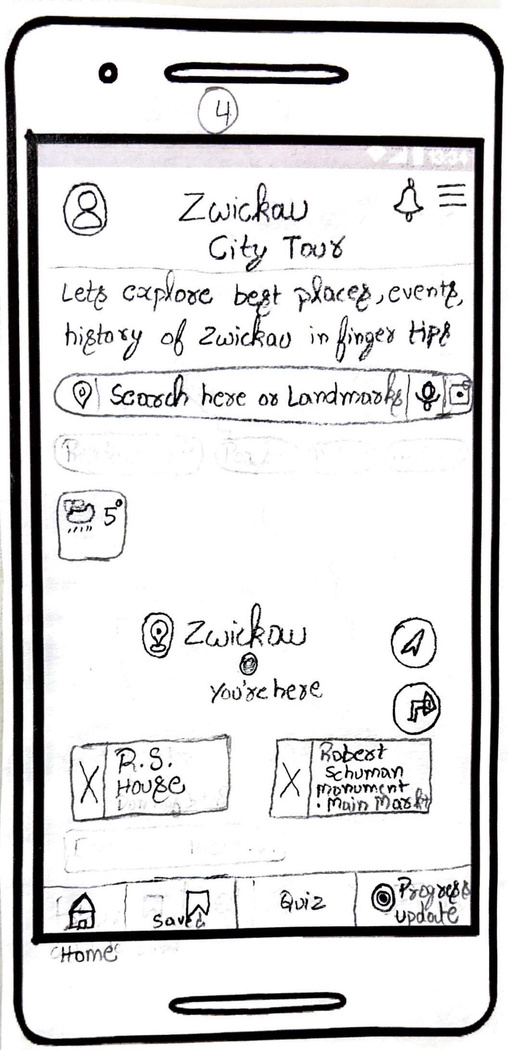 4
Zwickau
City Tour
Lets explore best places, events,
history of Zwickau in finger tips
Search here or Landmarks
5°
Zwickau
You're here
R.S.
House
Robert
Schuman
monument
. Main Markt
Saved
Quiz
Progress
update
Home